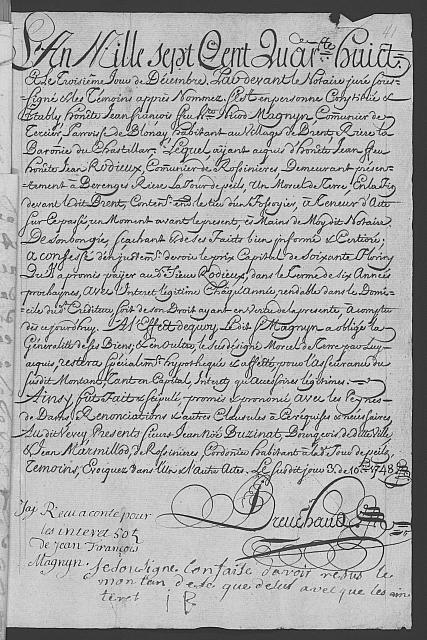 41
L'An Mille sept Cent Quar.te huict
& Le Troisième Jour de Décembre. Pardevant le Notaire juré Sous-
signé & les Témoins apprès Nommez. S'est en personne Constitué &
Etably honête Jean françois feu Mre Magnyn Comunier de
Tercier Parroisse de Blonay habitant au Village de Brent, Riere la
Baronie du Chastellar. Lequel ayjant aquis d'honête Jean ffeu
honête Jean Rodieux, Comunier de Rossinieres, Demeurant présen-
tement à Derenges Riere La Tour de peils, Un Morcel de Terre, En la Fin
devant le dit Brent, Conten.t env.
le tiers d'un Fossoyier, à Teneur d'Acte
sur Ce passé, un Moment avant le présent, ès Mains de Moy dit Notaire.
De son bongré, sçachant & de ses Faits bien informé & Certioré;
a Confessé deüement devoir le prix Capital de Soixante Florins
Qu'il a promis payer au dt Sieur Rodieux, dans le Terme de six Années
prochaynes, avec Interet legitime Chaq'Année, rendable dans le Domi-
cile du dt Créditeur soit de son Droit ayant en Vertu de la présente, à compter
dès aujourd'huy. A l'Effect dequoy, le dit Sr Magnyn a obligé la
Généralité de ses Biens; & en Oultre, le susdésigné Morcel de Terre par Luy
acquis, restera spécialem.t hypothequé & affetté, pour l'Assurance du
susdit Montant, tant en Capital, Interets qu'Accessoires legitimes.
Ainsy fut Fait & stipulé, promis & prononcé avec les Peynes
de Dams, Renonciations & autres Clausules à Ce réquises & nécessaires
Au dit Vevey, Presents Sieurs Jean Noé Buzinat, Bourgeois de dite Ville
& Jean Marmillod de Rossinieres, Cordonier habitant à la dt Tour de peilz,
Temoins, Evoquez dans Un & N'autre Actes. Le susdit jour 3e de Xbre 1748.
Breuchaud
Jay Reçu aconte pour
les interet 50 ƒ
de Jean François
Magnyn.
Je sousigne confaise d'avoir resus le
montan de se que desus avec que les ain
teret J R